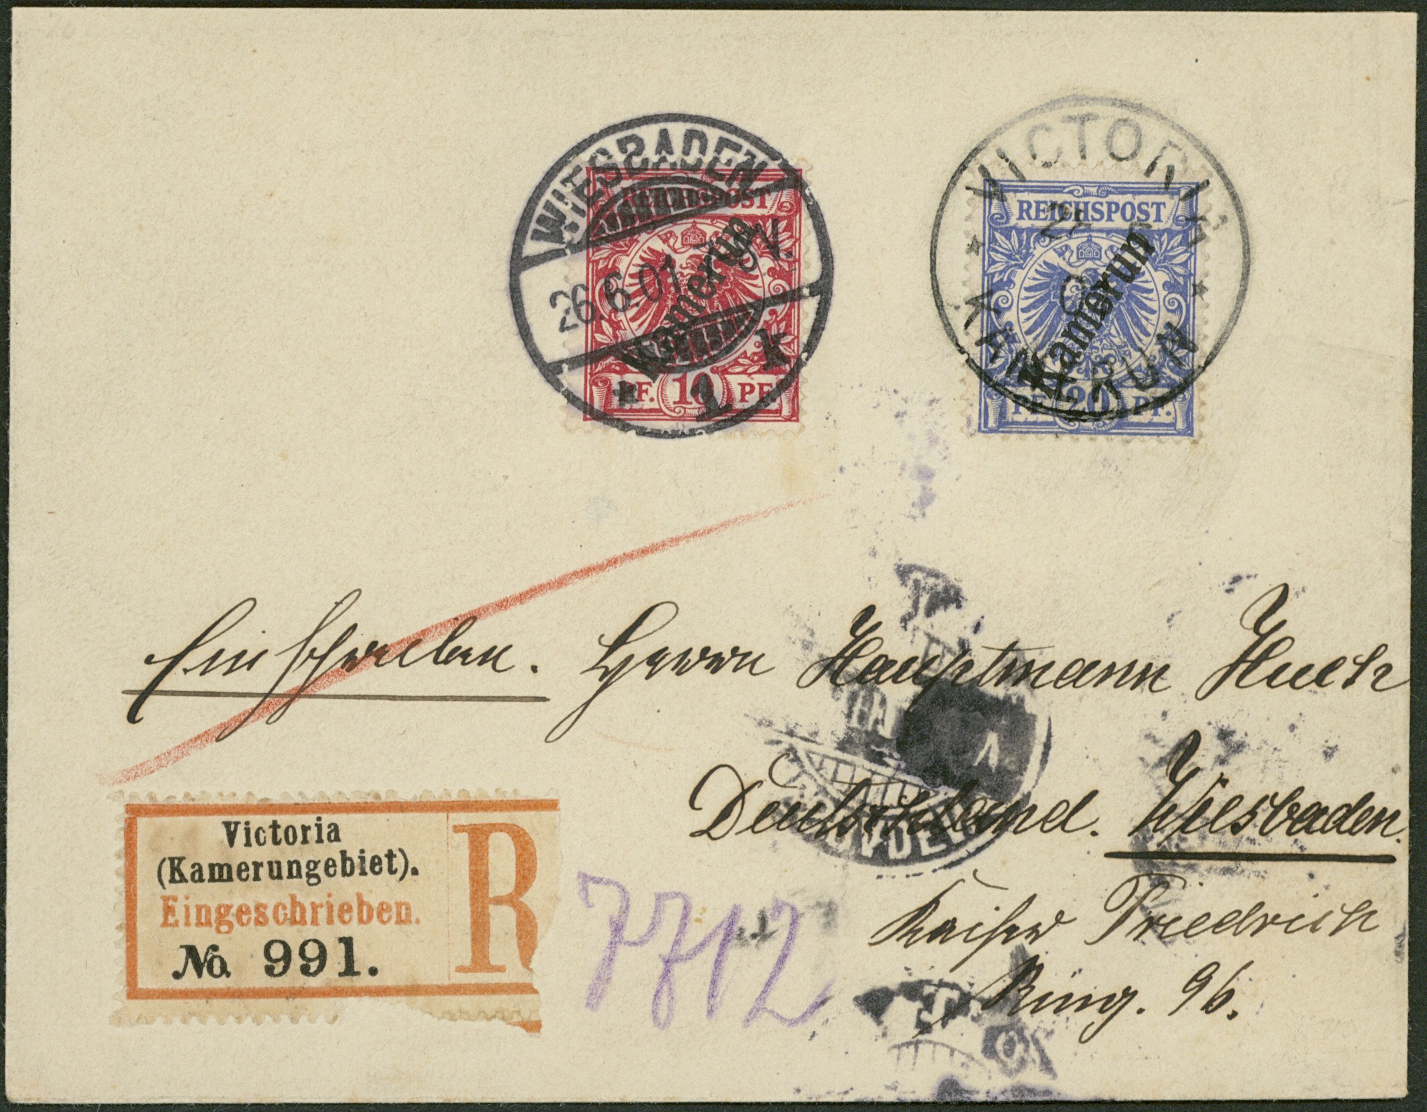 WIESBADEN
26.6.01. V.
* 1 k
REICHSPOST
Kamerun
PF. 10 PF.
VICTORIA
* *
KAMERUN
REICHSPOST
Kamerun
PF. 20 PF.
Einschreiben. Herrn Hauptmann
Deutschland. Wiesbaden.
Kaiser Friedrich
Ring. 96.
Victoria
(Kamerungebiet).
Eingeschrieben.
No. 991.
R
7712